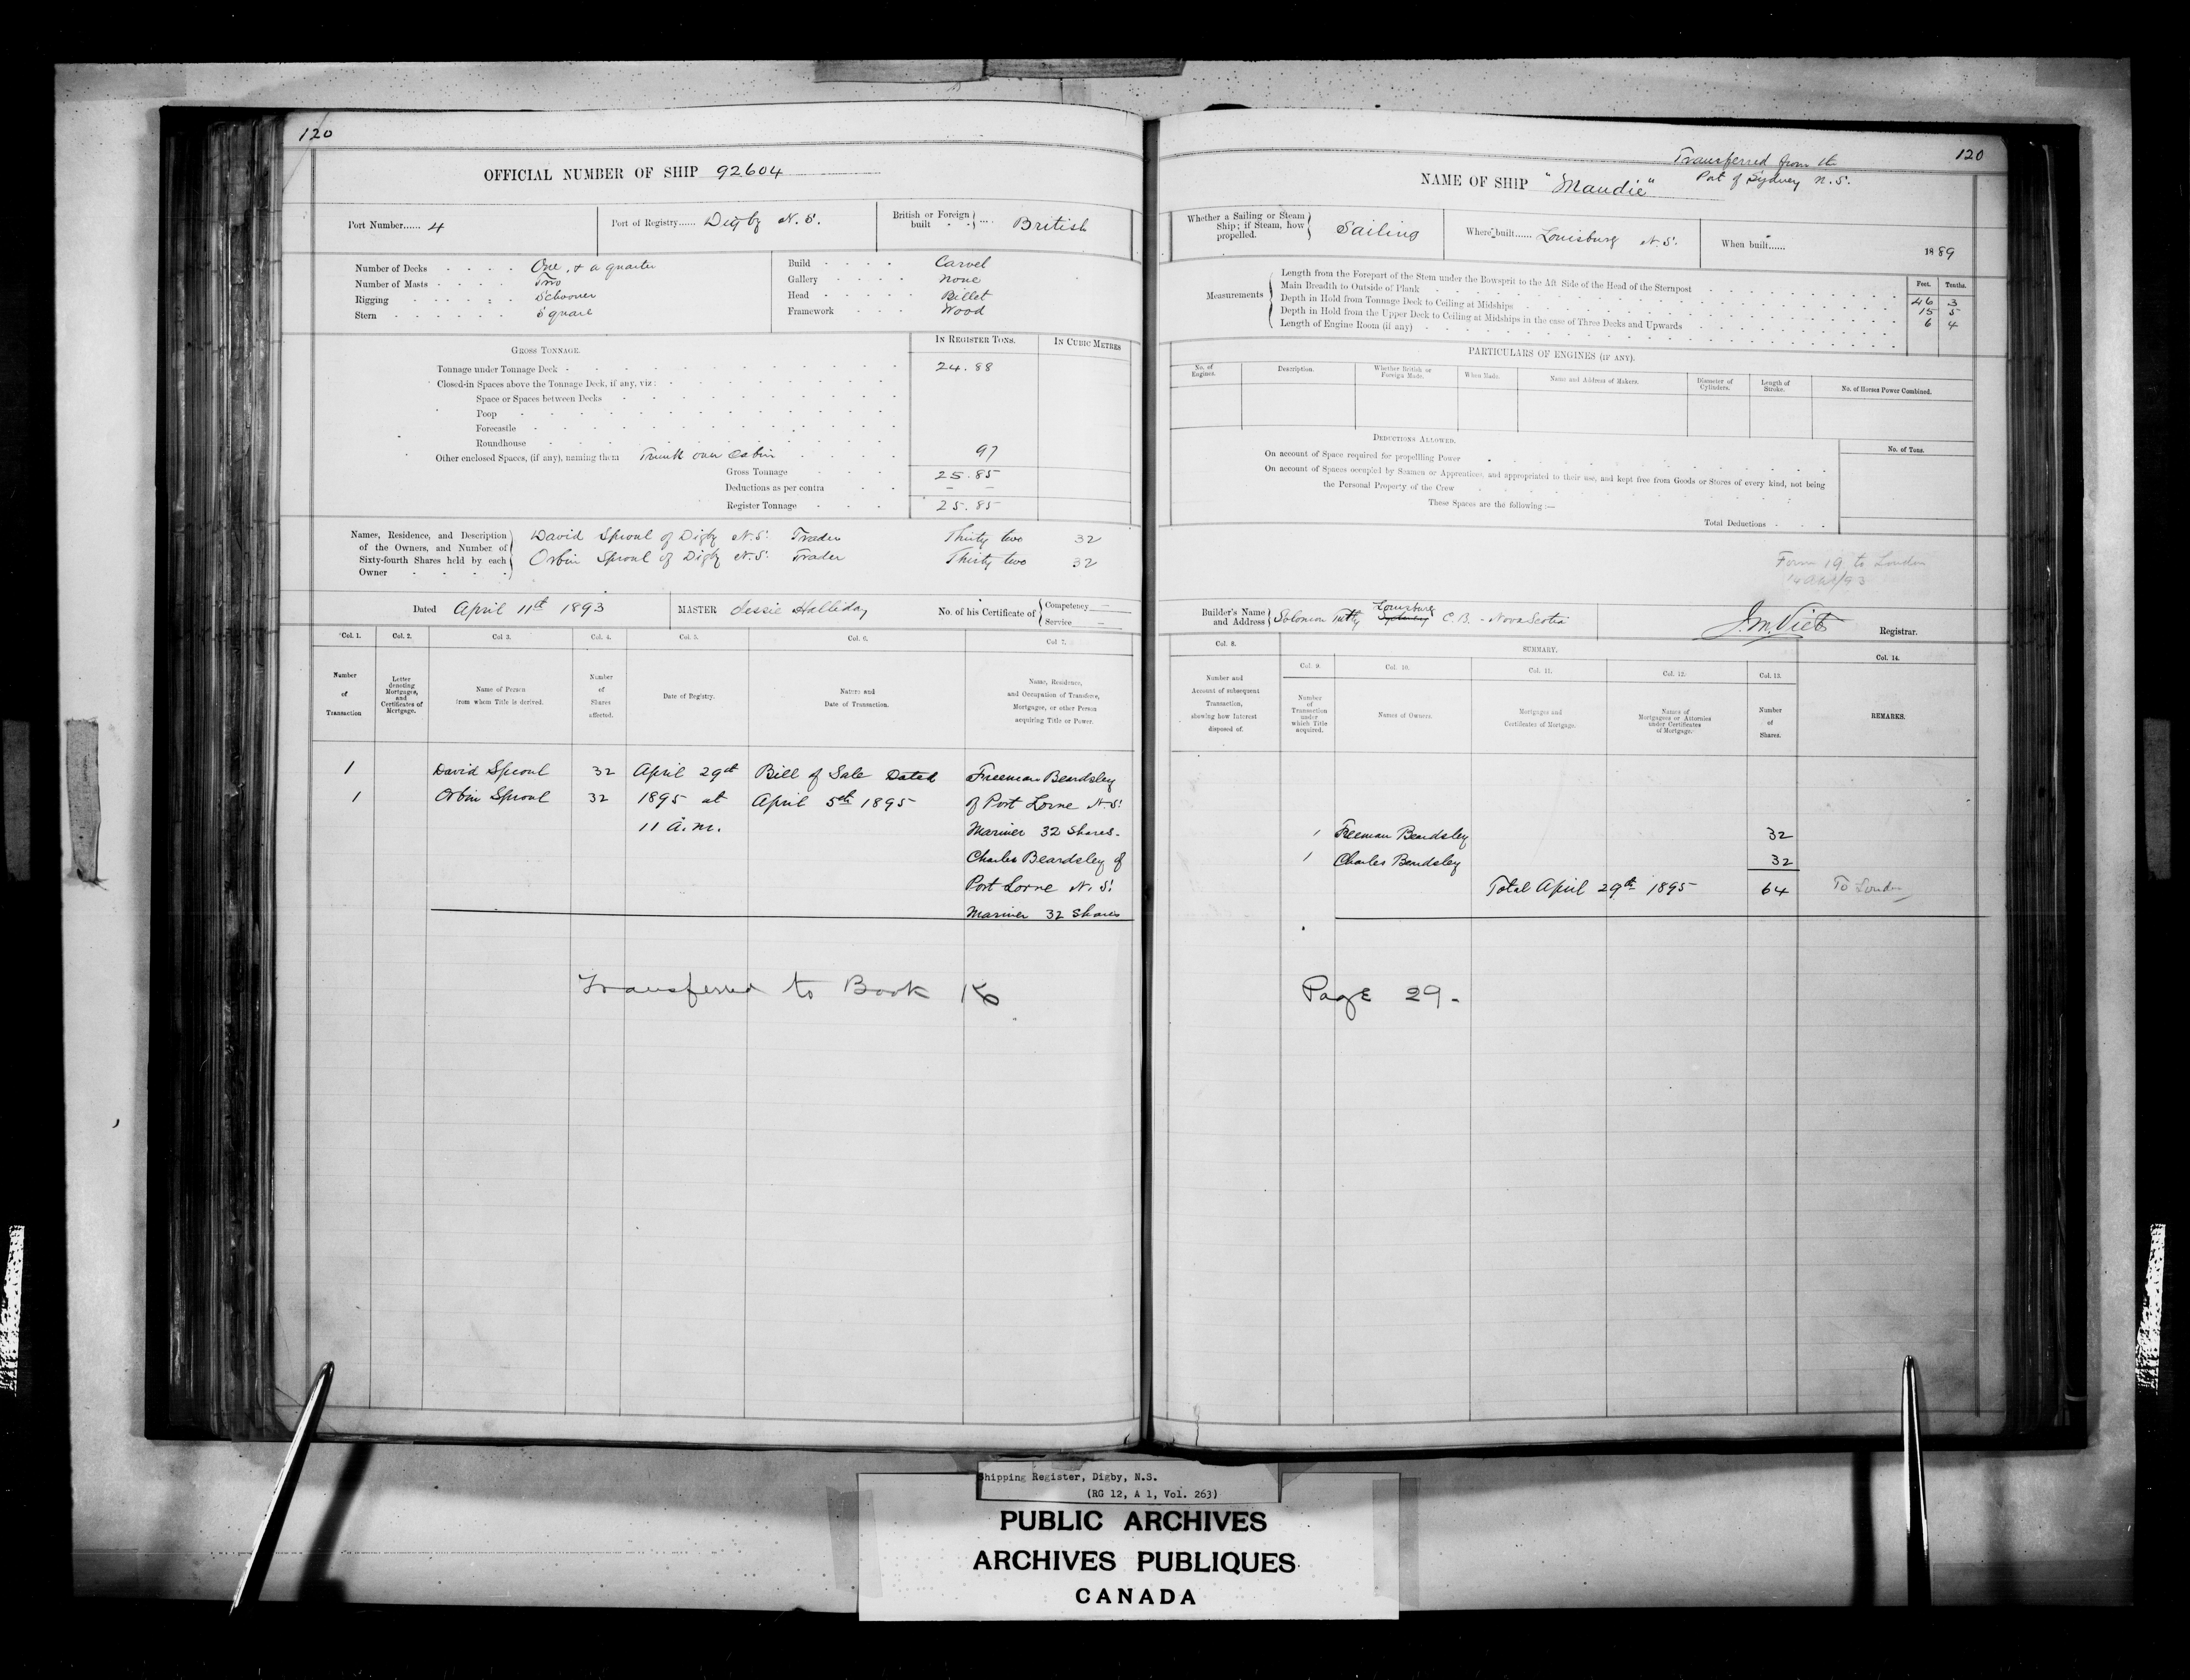 120
OFFICIAL NUMBER OF SHIP 92604
Port Number...... 4
Port of Registry...... Digby N.S.
British or Foreign built .... British
Number of Decks One, & a quarter
Number of Masts Two
Rigging Schooner
Stern Square
Build Carvel
Gallery None
Head Billet
Framework Wood
GROSS TONNAGE.
IN REGISTER TONS.
IN CUBIC METRES
Tonnage under Tonnage Deck 24.88
Closed-in Spaces above the Tonnage Deck, if any, viz:
Space or Spaces between Decks
Poop
Forecastle
Roundhouse
Other enclosed Spaces, (if any), naming them Trunk over Cabin 97
Gross Tonnage 25.85
Deductions as per contra – –
Register Tonnage 25.85
Names, Residence, and Description of the Owners, and Number of Sixty-fourth Shares held by each Owner
David Sproul of Digby N.S. Trader Thirty two 32
Orbin Sproul of Digby N.S. Trader Thirty two 32
Dated April 11th 1893
MASTER Jessie Halliday
No. of his Certificate of Competency — Service —
Col. 1. Col. 2. Col 3. Col. 4. Col. 5. Col. 6. Col 7.
Number of Transaction
Letter denoting Mortgages, and Certificates of Mortgage.
Name of Person from whom Title is derived.
Number of Shares affected.
Date of Registry.
Nature and Date of Transaction.
Name, Residence, and Occupation of Transferee, Mortgagee, or other Person acquiring Title or Power.
1 David Sproul 32 April 29th Bill of Sale Dated Freeman Beardsley
1 Orbin Sproul 32 1895 at April 5th 1895 of Port Lorne N.S.
11 a.m. Mariner 32 Shares.
Charles Beardsley of
Port Lorne N.S.
Mariner 32 Shares
Transferred to Book
120
Transferred from the
Port of Sydney N.S.
NAME OF SHIP "Maudie"
Whether a Sailing or Steam Ship; if Steam, how propelled. Sailing
Where built...... Louisburg N.S.
When built...... 1889
Measurements
Feet. Tenths.
Length from the Forepart of the Stem under the Bowsprit to the Aft Side of the Head of the Sternpost 46 3
Main Breadth to Outside of Plank 15 5
Depth in Hold from Tonnage Deck to Ceiling at Midships 6 4
Depth in Hold from the Upper Deck to Ceiling at Midships in the case of Three Decks and Upwards
Length of Engine Room (if any)
PARTICULARS OF ENGINES (IF ANY).
No. of Engines.
Description.
Whether British or Foreign Made.
When Made.
Name and Address of Makers.
Diameter of Cylinders.
Length of Stroke.
No. of Horses Power Combined.
DEDUCTIONS ALLOWED.
No. of Tons.
On account of Space required for propelling Power
On account of Spaces occupied by Seamen or Apprentices, and appropriated to their use, and kept free from Goods or Stores of every kind, not being
the Personal Property of the Crew
These Spaces are the following :—
Total Deductions
Form 19 to London
Builder's Name and Address Solomon Louisburg C.B. - Nova Scotia
J.M. Viets Registrar.
Col. 8. SUMMARY. Col. 14.
Col. 9. Col. 10. Col. 11. Col. 12. Col. 13.
Number and Account of subsequent Transaction, showing how Interest disposed of.
Number of Transaction under which Title acquired.
Names of Owners.
Mortgages and Certificates of Mortgage.
Names of Mortgagees or Attornies under Certificates of Mortgage.
Number of Shares.
REMARKS.
1 Freeman Beardsley 32
1 Charles Beardsley 32
Total April 29th 1895 64 To London
Page 29.
Shipping Register, Digby, N.S.
(RG 12, A 1, Vol. 263)
PUBLIC ARCHIVES
ARCHIVES PUBLIQUES
CANADA